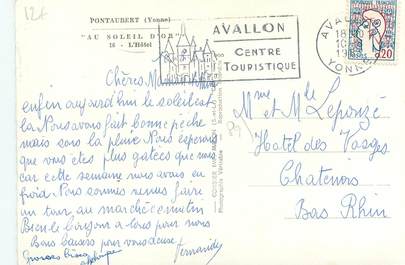 12f
PONTAUBERT (Yonne)
"AU SOLEIL D'OR"
16 - L'Hôtel
AVALLON
CENTRE
TOURISTIQUE
AVALLON
18H30
10-
19
YONNE
0,20
Chères
enfin aujourd'hui le soleil est
là. Nous avons fait bonne pêche
mais sous la pluie. Nous espérons
que vous êtes plus gatées que nous
car cette semaine nous avons eu
froid. Nous sommes venus faire
un tour au marché ce matin
Bien le bonjour à tous pour nous
Bons baisers pour vous deux.
Fernande
Grosses bises
Mme et Mlle Leponze
Hotel des Vosges
Chatenois
Bas Rhin